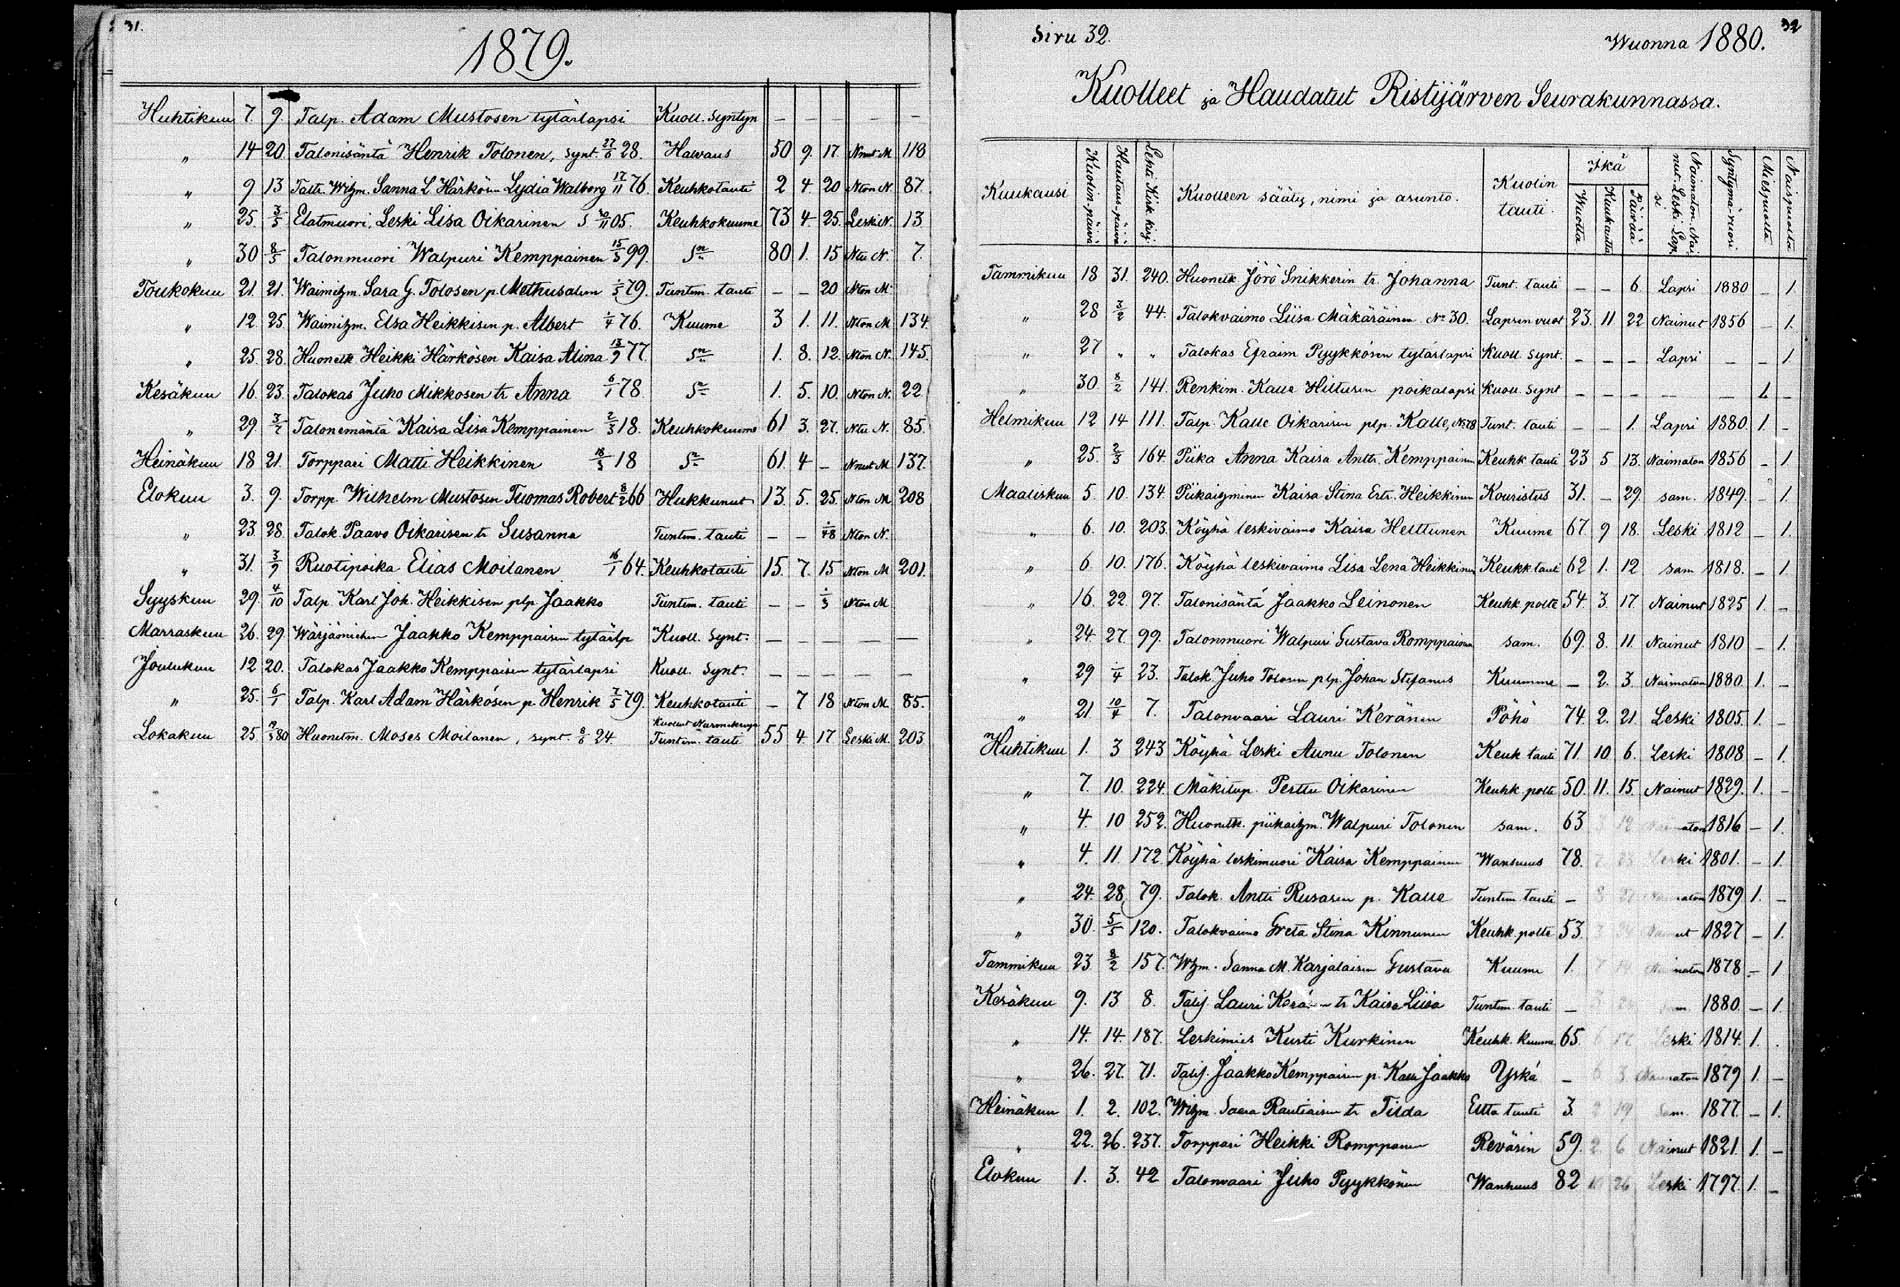 31.
1879.
Huhtikuu 7. 9. Talp. Adam Mustosen tytärlapsi Kuoll. Syntyn — — — — —
„ 14 20 Talonisäntä Henrik Tolonen, synt. 27/6 28. Halvaus 50 9. 17. Nnut M. 118
„ 9 13 Taltu. Witzm. Sanna L. Härkösen Lydia Walborg 17/11 76. Keuhkotauti 2 4 20 Nton N. 87.
„ 25. 3/5 Elatmuori, Leski Lisa Oikarinen S /11 05. Keuhkokuume 73 4 25. Leski N. 13.
„ 30 8/5 Talonmuori Walpuri Kemppainen 15/3 99. Sn 80 1. 15 Ntu N. 7.
Toukokuu 21. 21. Waimitzm. Sara G. Tolosen p. Methusalem 1/5 79. Tuntem. tauti — — 20 Nton M
„ 12 25. Waimitzm. Elsa Heikkisen p. Albert 1/4 76. Kuume 3 1. 11. Nton M. 134.
„ 25. 28. Huonelk Heikki Härkösen Kaisa Alina 13/9 77. Sn 1. 8. 12. Nton N. 145.
Kesäkuu 16. 23. Talokas Juho Mikkosen tr Anna 6/1 78. Sn 1. 5. 10. Nton N. 22.
„ 29. 3/7 Talonemäntä Kaisa Lisa Kemppainen 2/3 18. Keuhkokuume 61 3. 27. Ntu N. 85.
Heinäkuu 18 21. Torppari Matti Heikkinen 18/3 18 Sn 61. 4 — Nnut M. 137.
Elokuu 3. 9. Torpp. Wilhelm Mustosen Tuomas Robert 8/2 66 Hukkunut 13. 5. 25. Nton M. 208
„ 23. 28. Talok Paavo Oikarisen tr Susanna Tuntem. tauti — — 1/48 Nton N.
„ 31. 3/9 Ruotipoika Elias Moilanen 16/1 64. Keuhkotauti 15. 7. 15 Nton M. 201.
Syyskuu 29. 4/10 Talp. Karl Joh. Heikkisen plp Jaakko Tuntem. tauti — — 1/3 Nton M
Marraskuu 26. 29. Wärjämichen Jaakko Kemppaisen tytärlp Kuoll. Synt. — — — — —
Joulukuu 12 20. Talokas Jaakko Kemppaisen tytärlapsi Kuoll. Synt. — — — — —
„ 25. 6/1 Talp. Karl Adam Härkösen p. Henrik 7/5 79. Keuhkotauti — 7 18 Nton M. 85.
Kuollut Nurmeksessa
Lokakuu 25 /3 80 Huonetm. Moses Moilanen, synt. 8/6 24. Tuntem. tauti 55 4. 17 Leski M. 203
Sivu 32.
Wuonna 1880. 32
Kuolleet ja Haudatut Ristijärven Seurakunnassa.
Kuukausi Kuolin-päivä Hautaus-päivä Lehti Kirk. kirj. Kuolleen sääty, nimi ja asunto. Kuolin tauti. Ikä Wuotta Kuukautta Päivää Naimaton. Nainut. Leski. Lapsi Syntymä-vuosi Miespuolta Naispuolta
Tammikuu 18 31. 240. Huonelk Jörö Snikkerin tr. Johanna Tunt. tauti — — 6. Lapsi 1880 — 1.
„ 28 3/2 44. Talokvaimo Liisa Mäkäräinen No 30. Lapsin vuot 23. 11 22 Nainut 1856 — 1.
„ 27 „ „ Talokas Efraim Pyykkösen tytärlapsi Kuoll. Synt. — — — Lapsi — — 1
„ 30. 8/2 141. Renkim. Kalle Hilturin poikalapsi Kuoll. Synt — — — — — 1. —
Helmikuu 12 14 111. Talp. Kalle Oikarisen plp. Kalle, No 78 Tunt. tauti — — 1. Lapsi 1880. 1. —
„ 25. 2/3 164 Piika Anna Kaisa Antt. Kemppainen Keuhk tauti 23 5 13. Naimaton 1856 — 1
Maaliskuu 5. 10. 134. Piikaitzminen Kaisa Stina Ertr. Heikkinen Kouristus 31. — 29. sam. 1849. — 1.
„ 6. 10. 203. Köyhä leskivaimo Kaisa Helttunen Kuume 67. 9 18. Leski 1812 — 1.
„ 6 10. 176. Köyhä leskivaimo Lisa Lena Heikkinen Keuhk tauti 62 1. 12 sam 1818. — 1.
„ 16. 22. 97. Talonisäntä Jaakko Leinonen Keuhk. polte 54. 3. 17. Nainut 1825 1. —
„ 24 27. 99. Talonmuori Walpuri Gustava Romppainen sam. 69. 8. 11. Nainut 1810 — 1.
„ 29 1/4 23. Talok Juho Tolosen plp. Johan Stefanus Kuumme — 2. 3. Naimaton 1880. 1. —
„ 21. 10/4 7. Talonvaari Lauri Keränen Pöhö 74. 2. 21. Leski 1805. 1. —
Huhtikuu 1. 3 243 Köyhä Leski Aunu Tolonen Keuk tauti 71. 10. 6. Leski 1808 — 1.
„ 7. 10. 224. Mäkitup. Perttu Oikarinen Keuhk. polte 50. 11. 15. Nainut 1829. 1. —
„ 4. 10 252. Huonelk. piikaitzm. Walpuri Tolonen sam. 63 3 12 Naimaton 1816 — 1.
„ 4. 11. 172 Köyhä leskimuori Kaisa Kemppainen Wanhuus 78. Leski 1801. — 1.
„ 24. 28. 79. Talok. Antti Rusasen p. Kalle Tuntem tauti — 8 Naimaton 1879 1. —
„ 30. 5/5 120. Talokvaimo Greta Stina Kinnunen Keuhk. polte 53. 3 24 Nainut 1827 — 1.
Tammikuu 23. 8/2 157. Wtzm. Sanna M. Karjalaisen Gustava Kuume 1. 7 14 Naimaton 1878 — 1
Kesäkuu 9. 13 8. Talij. Lauri Kerä— tr Kaisa Liisa Tuntem. tauti — 3 1880. — 1.
„ 14. 14. 187. Leskimies Kusti Kurkinen Keuhk. kuume 65. 6 17 Leski 1814. 1. .
„ 26. 27. 71. Talij. Jaakko Kemppaisen p. Kalle Jaakko Yskä — 6 3. Naimaton 1879 1. —
Heinäkuu 1. 2. 102. Witzm. Saara Rautiaisen tr Tilda Eltta tauti 3. 2 19 Sam. 1877. — 1.
„ 22. 26. 237. Torppari Heikki Romppanen Revärin 59. 2. 6 Nainut 1821. 1. —
Elokuu 1. 3. 42 Talonvaari Juho Pyykkönen Wanhuus 82 10 26 Leski 1797. 1. —